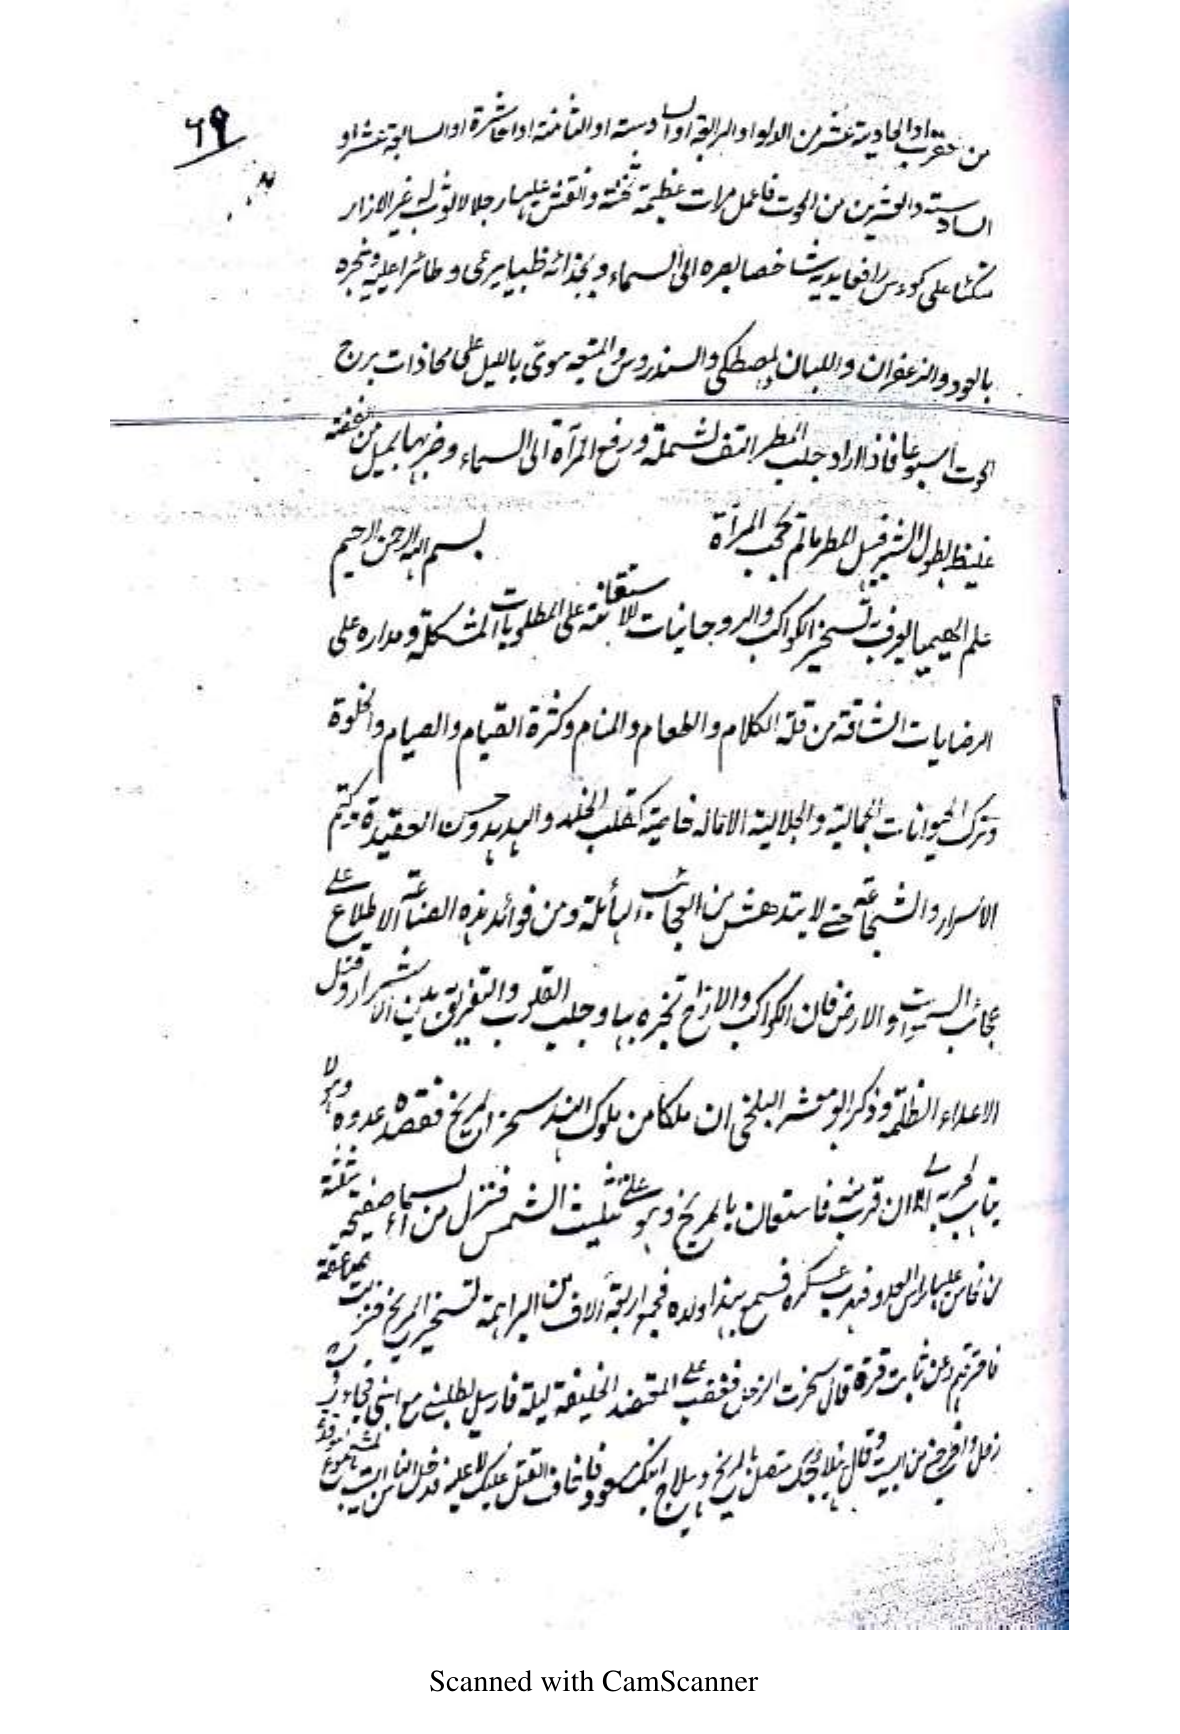 ٦٩
من عقرب او الحادية عشر من الدلو او الرابعة او السادسة او الثامنة او العاشرة او السابعة عشر او
السادسة والعشرين من الحوت فاعمل مرات عظيمة ثخنة وانقش عليها رجلا لا ثوب له غير الازار
متكئا على كوسى رافعا يديه شاخصا بصره الى السماء وبحذائه ظبيا يرعى وطائرا عليه وبخره
بالعود والزعفران واللبان والمصطكى والسندروس والميعه سوى بالليل على محاذات برج
الحوت اسبوعا فاذا اراد جلب المطر التف لشملة ورفع المرآة الى السماء وضربها بميل من فضته
غليظ بطول الشبر فيسل المطر مالم تحجب المرآة
بسم الله الرحمن الرحيم
علم الهيميا يعرف به تسخير الكواكب والروحانيات للاستعانة على المطلوبات المشكلة ومداره على
الرضايات الشاقة من قلة الكلام والطعام والمنام وكثرة القيام والصيام والخلوة
وترك الحيوانات الجمالية والجلالية الا ماله خاصية كقلب الخلد والهدهد وحسن العقيدة وكتم
الأسرار والشجاعة حتى لا يتدهش من العجائب الهائلة ومن فوائد هذه الصناعة الاطلاع على
عجائب السموات والارض فان الكواكب والارواح تخبره بها وجلب القلوب والتفريق بين الاشرار وقتل
الاعداء الظلمة وذكر ابو معشر البلخى ان ملكا من ملوك الهند سخر المريخ فقصده عدوه وهو لا
يتاهب لحربه الى ان قرب منه فاستعان بالمريخ وهو على تثليث الشمس فنزل من السماء صفيحة مثلثة
من نحاس عليها راس العدو فهرب عسكره فسمع بهذا ولده فجمع اربعة آلاف من البراهمة لتسخير المريخ فنزلت صاعقة
فاحرقتهم وعن ثابت قرة قال سخرت الزحل فغضب على المعتضد الخليفة ليلة فارسل لطلبنى مع ابنى فجاءنى
زحل واخرجنى من البيت وقال